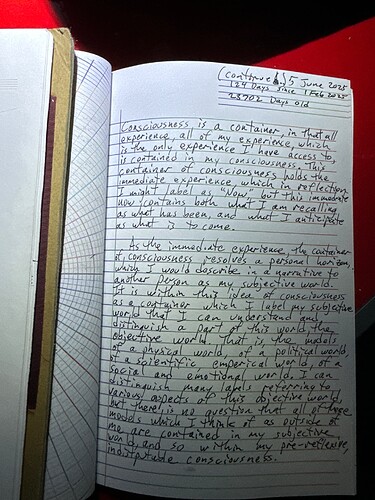 (continued.) 5 June 2025
124 Days since 1 Feb 2025
23702 Days old
Consciousness is a container, in that all
experience, all of my experience, which
is the only experience I have access to
is contained in my consciousness. This
container of consciousness holds the
immediate experience, which in reflection
I might label as "Now", but this immediate
now contains both what I am recalling
as what has been, and what I anticipate
as what is to come.
As the immediate experience, the container
of consciousness resolves a personal horizon,
which I would describe in a narrative to
another person as my subjective world.
It is within this idea of consciousness
as a container which I label my subjective
world that I can understand and
distinguish a part of this world, the
objective world. That is, the models
of a physical world, of a political world,
of a scientific emperical world, of a
social and emotional world. I can
distinguish many labels referring to
various aspects of this objective world,
but there is no question that all of those
models which I think of as outside of
me are contained in my subjective
world, and so within my pre-reflexive,
indisputable consciousness.